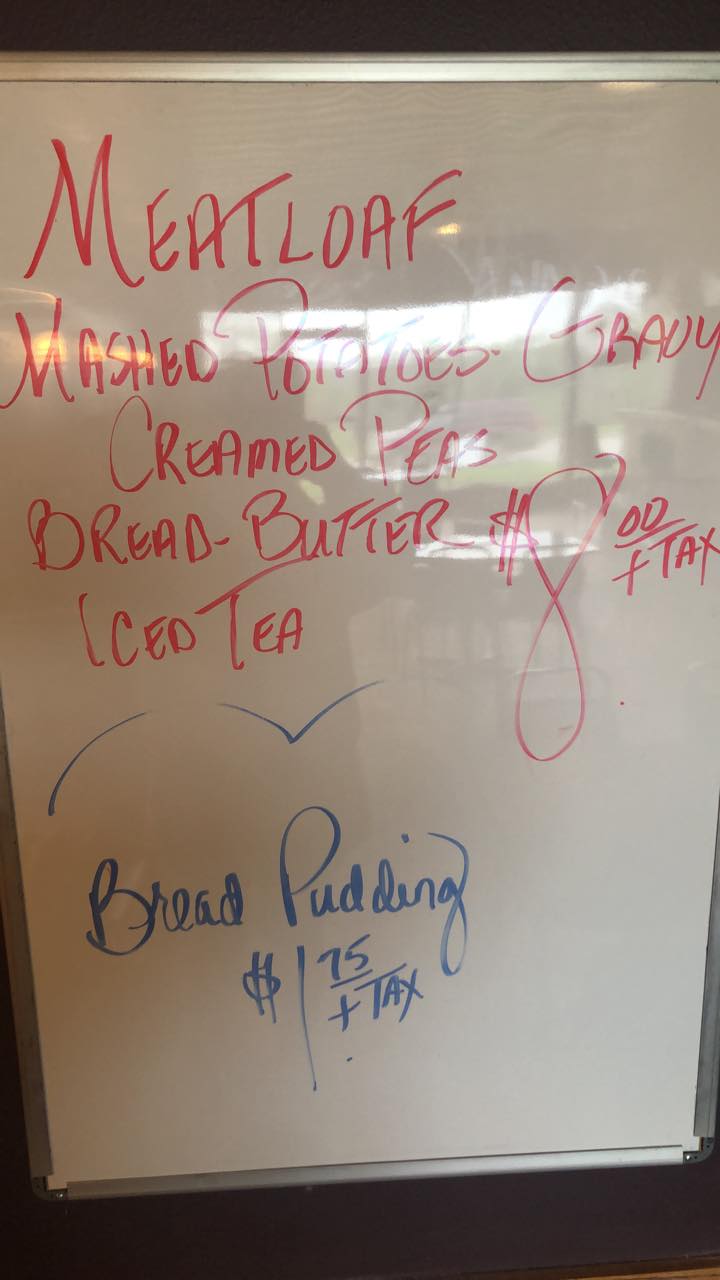 MEATLOAF
MASHED POTATOES - GRAVY
CREAMED PEAS
BREAD - BUTTER $8 00 + TAX
ICED TEA
Bread Pudding
$1 75 + TAX